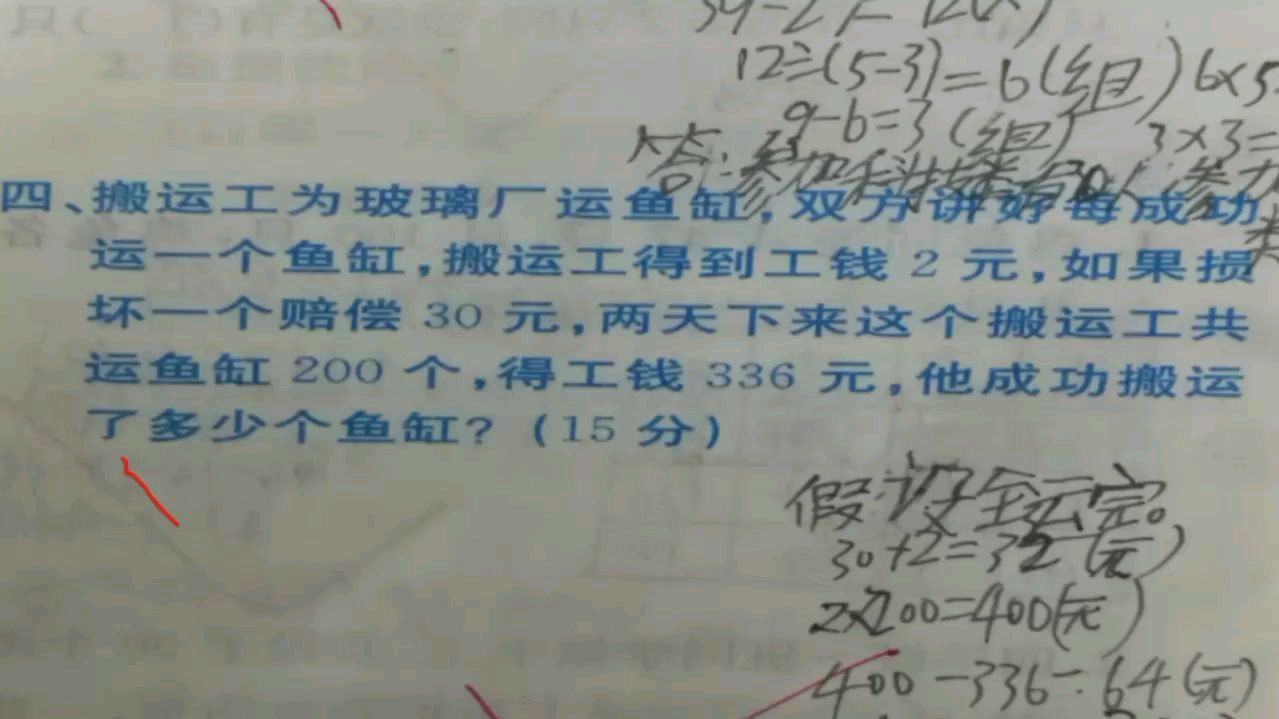 12÷(5-3)=6(组) 6×5
9-6=3(组) 3×3=
答:参加科技类有30人,参加
四、搬运工为玻璃厂运鱼缸,双方讲好每成功
类
运一个鱼缸,搬运工得到工钱 2 元,如果损
坏一个赔偿 30 元,两天下来这个搬运工共
运鱼缸 200 个,得工钱 336 元,他成功搬运
了多少个鱼缸?(15 分)
假设全运完。
30+2=32(元)
2×200=400(元)
400-336=64(元)